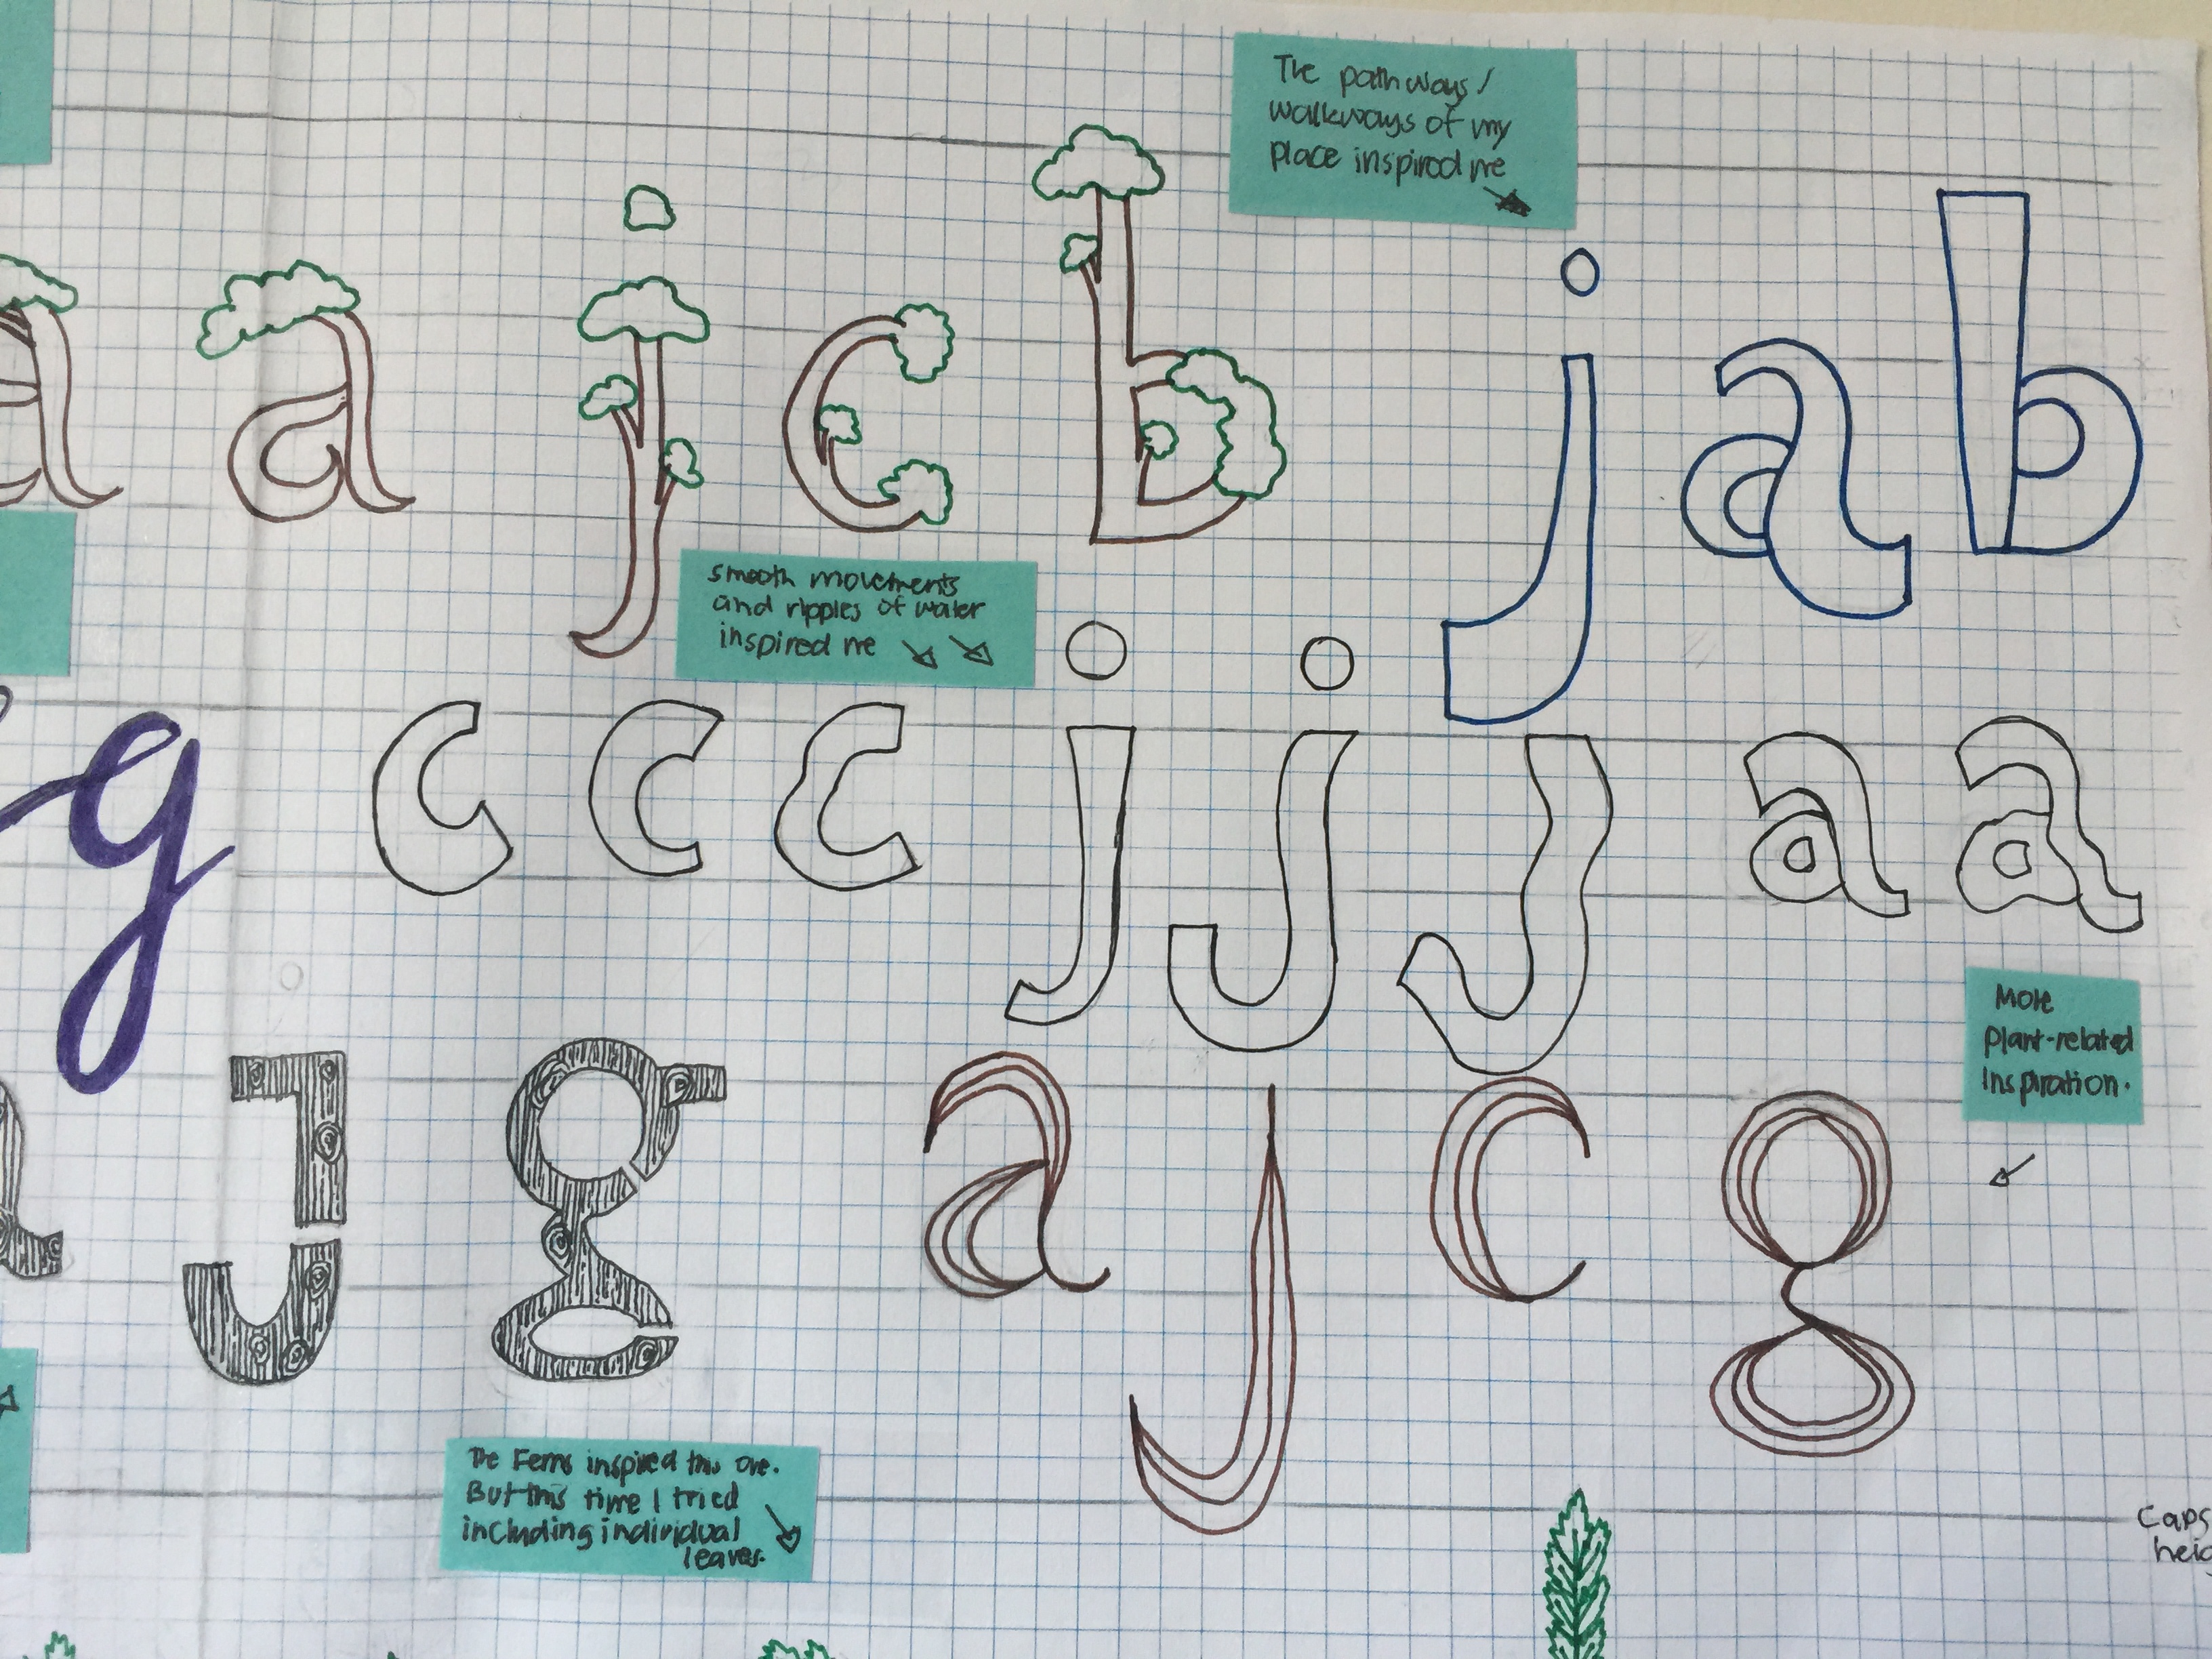 The pathways/
walkways of my
place inspired me
a a j c b
j a b
smooth movements
and ripples of water
inspired me
g c c c j j j a a
More
plant-related
Inspiration.
a J g a j c g
The Ferns inspired this one.
But this time I tried
including individual
leaves.
Caps
heig